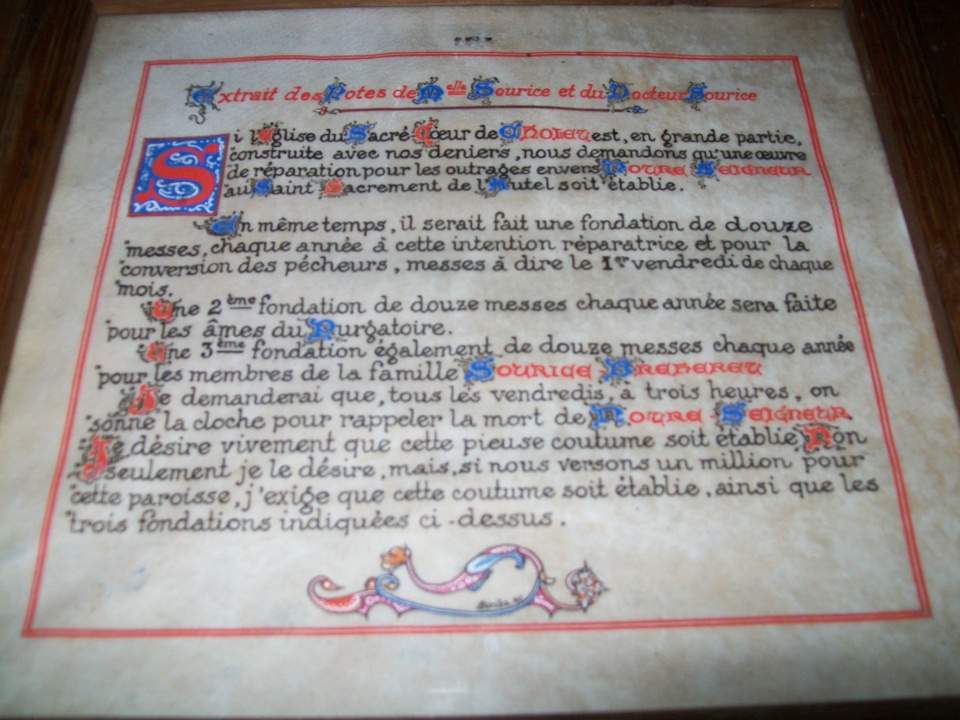 Extrait des Notes de Melle Sourice et du Docteur Sourice
Si l'Eglise du Sacré-Cœur de CHOLET est, en grande partie,
construite avec nos deniers, nous demandons qu'une œuvre
de réparation pour les outrages envers NOTRE SEIGNEUR
au Saint Sacrement de l'Autel soit établie.
En même temps, il serait fait une fondation de douze
messes, chaque année à cette intention réparatrice et pour la
conversion des pécheurs, messes à dire le 1er vendredi de chaque
mois.
Une 2ème fondation de douze messes chaque année sera faite
pour les âmes du Purgatoire.
Une 3ème fondation également de douze messes chaque année
pour les membres de la famille SOURICE BREBEREU
Je demanderai que, tous les vendredis, à trois heures, on
sonne la cloche pour rappeler la mort de NOTRE-SEIGNEUR.
Je désire vivement que cette pieuse coutume soit établie Non
seulement je le désire, mais, si nous versons un million pour
cette paroisse, j'exige que cette coutume soit établie, ainsi que les
trois fondations indiquées ci-dessus.